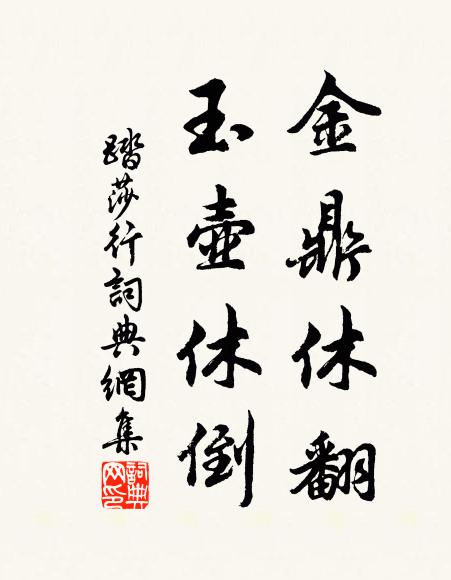 金鼎休翻
玉壺休倒
踏莎行詞典網集
詞典网印